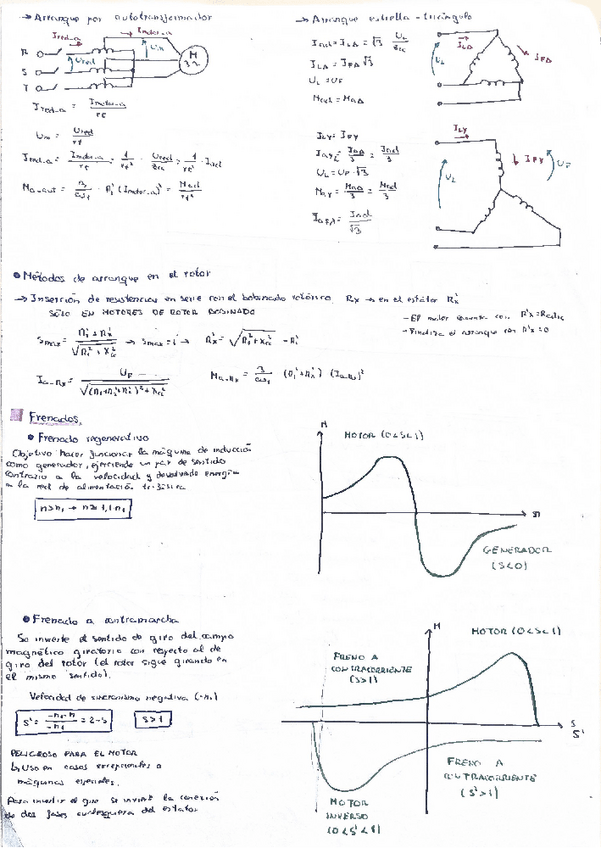 → Arranque por autotransformador
Ired_a
Imotor_a
Um
Ured
R
S
T
M
3~
Ired_a = Imotor_a / rt
Um = Ured / rt
Ired_a = Imotor_a / rt = 1 / rt² · Ured / Zcc = 1 / rt² · Iad
Ma_aut = 3 / ω1 · R'2 (Imotor_a)² = Mad / rt²
→ Arranque estrella - triángulo
Iad = ILΔ = √3 UL / Zcc
ILΔ = IFΔ √3
UL = UF
Mad = MaΔ
ILΔ
IFΔ
UL
ILY = IFY
IaY = IaΔ / 3 = Iad / 3
UL = UF · √3
MaY = MaΔ / 3 = Mad / 3
Iad / √3
ILY
IFY
UF
UL
• Métodos de arranque en el rotor
→ Inserción de resistencias en serie con el bobinado rotórico. Rx → en el estátor R'x
SÓLO EN MOTORES DE ROTOR BOBINADO
- El motor comienza con
- Finaliza el arranque con R'x = 0
Smax = R'2 + R'x / √R1² + Xcc² → Smax = 1 → R'x = √R1² + Xcc² - R'2
Ia_Rx = UF / √(R1 + R'2 + R'x)² + Xcc²
Ma_Rx = 3 / ω1 (R'2 + R'x) (Ia_Rx)²
Frenados
• Frenado regenerativo
Objetivo: hacer funcionar la máquina de inducción
como generador, ejerciendo un par de sentido
contrario a la velocidad y devolviendo energía
a la red de alimentación trifásica
n > n1 → n ≈ 1,1 n1
M
MOTOR (0<S<1)
GENERADOR
(S<0)
• Frenado a contramarcha
Se invierte el sentido de giro del campo
magnético giratorio con respecto al de
giro del rotor (el rotor sigue girando en
el mismo sentido).
Velocidad de sincronismo negativa (-n1)
S' = -n1 - n / -n1 = 2 - S
S > 1
PELIGROSO PARA EL MOTOR
↳ Uso en casos excepcionales o
máquinas especiales.
Para invertir el giro se invierte la conexión
de dos fases cualesquiera del estator
M
MOTOR (0<S<1)
FRENO A
CONTRACORRIENTE
(S>1)
S
S'
FRENO A
CONTRACORRIENTE
(S'>1)
MOTOR
INVERSO
(0<S'<1)